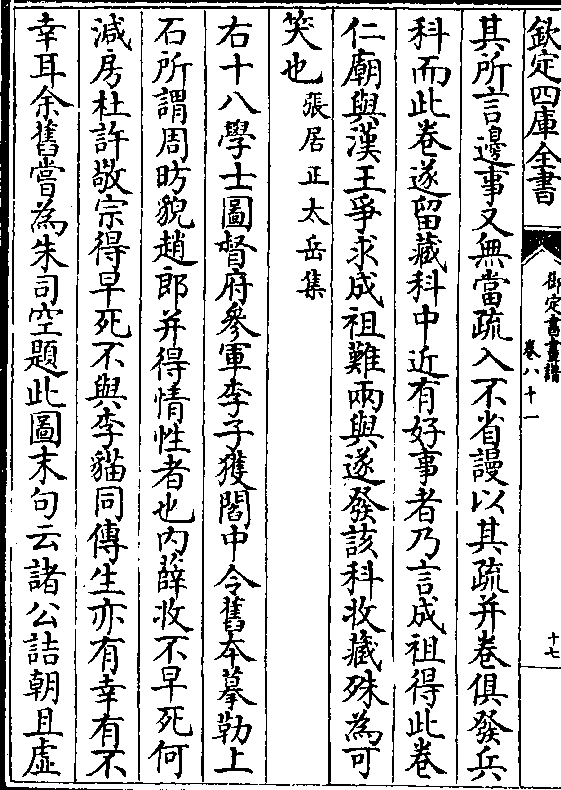 欽定四庫全書
御定書畫譜
卷八十一
十七
其所言邊事又無當疏入不省謾以其疏并卷俱發兵
科而此卷遂留藏科中近有好事者乃言成祖得此卷
仁廟與漢王爭求成祖難兩與遂發該科收藏殊為可
笑也張居正太岳集
右十八學士圖督府參軍李子獲閣中令舊本摹勒上
石所謂周昉貌趙郎并得情性者也內薛收不早死何
減房杜許敬宗得早死不與李貓同傳生亦有幸有不
幸耳余舊嘗為朱司空題此圖末句云諸公詰朝且虛